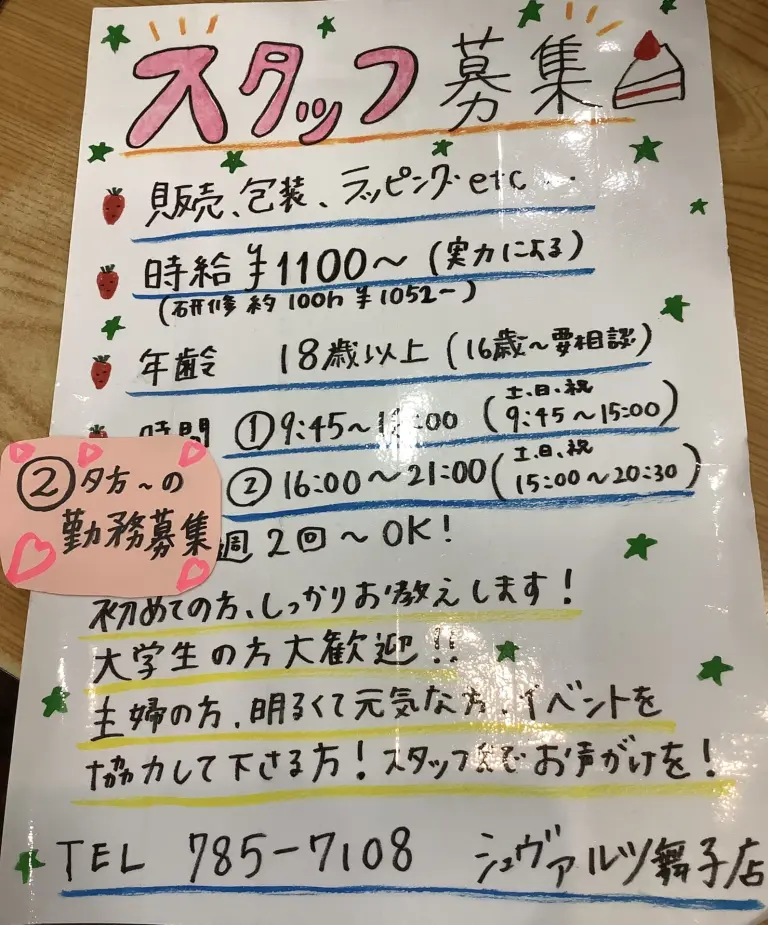 スタッフ募集
販売、包装、ラッピングetc...
時給 ¥1100～(実力による)
(研修 約100h ¥1052-)
年齢 18歳以上(16歳～要相談)
時間 ①9:45～ :00 (土、日、祝 9:45～15:00)
②16:00～21:00(土、日、祝 15:00～20:30)
②夕方～の
勤務募集
週2回～OK!
初めての方、しっかりお教えします!
大学生の方大歓迎!!
主婦の方、明るくて元気な方、イベントを
協力して下さる方!スタッフまでお声がけを!
TEL 785-7108 シュヴァルツ舞子店